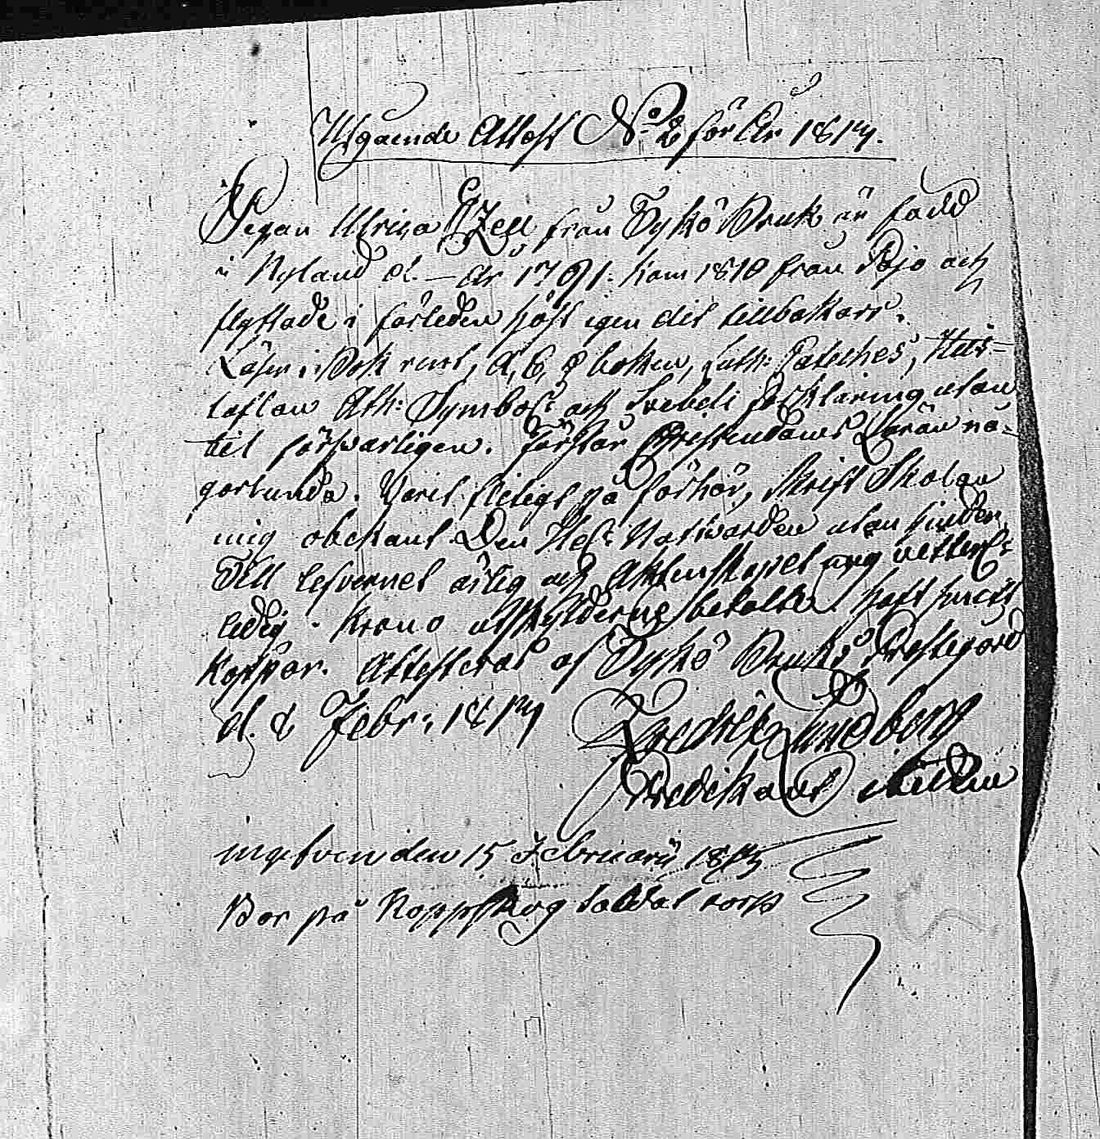 Utgående Attest No 2 för År 1817.
Pigan Ulrica Zell från Tykö Bruk är född
i Nyland d. — År 1791. kom 1810 från Pojo och
flyttade i förleden höst igen dit tillbakars.
Läser i Bok rent, A, B, C boken, Luth: Cateches, Hus-
taflan Ath: Symbol: och Svebeli förklaring utan
til försvarligen. Förstår Christendoms Läran nå-
gorlunda. Varit flitigt på förhör, Skrift Skolan
mig obekant Den Hel: Nattvarden utan hinder,
Till lefvernet ärlig och Aktenskapet mig vetterl:
ledig. Krono utskylderne betalte. Haft
Koppor. Attesteras af Tykö Bruks Prestegård
d. 8 Febr: 1817
Fredric Lindberg
Predikant
ingifven den 15 Februarii 1817
Bor på Koppskog Soldat torp